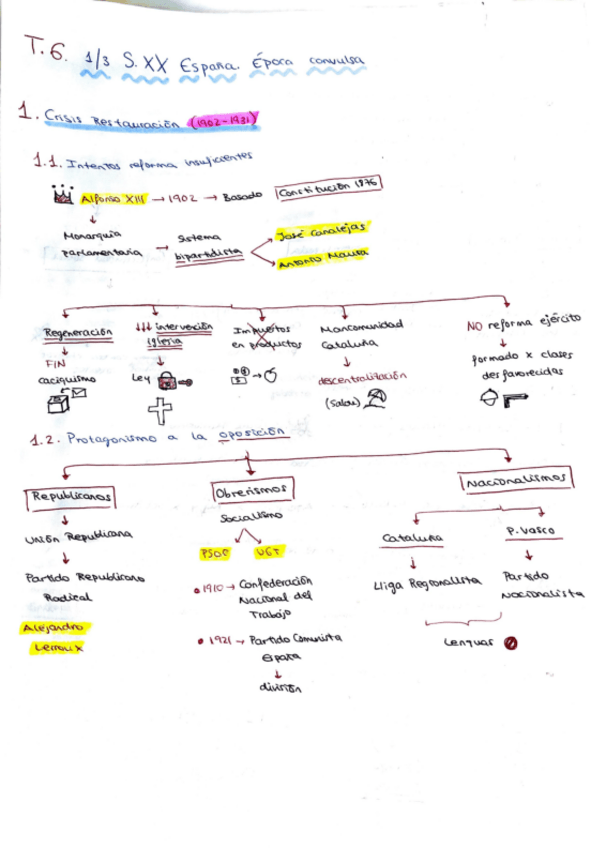 T.6. 1/3 S.XX España. Época convulsa
1. Crisis Restauración (1902-1931)
1.1. Intentos reforma insuficientes
Alfonso XIII → 1902 → Basado Constitución 1876
Monarquía parlamentaria → Sistema bipartidista
José Canalejas
Antonio Maura
Regeneración
FIN
caciquismo
↓↓↓ intervención
iglesia
Ley
Impuestos
en productos
Mancomunidad
Cataluña
descentralización
(Salou)
NO reforma ejército
formado x clases
desfavorecidas
1.2. Protagonismo a la oposición
Republicanos
Unión Republicana
Partido Republicano
Radical
Alejandro
Lerroux
Obrerismos
Socialismo
PSOE UGT
1910 → Confederación
Nacional del
Trabajo
1921 → Partido Comunista
España
división
Nacionalismos
Cataluña
Lliga Regionalista
P. Vasco
Partido
Nacionalista
Lenguas